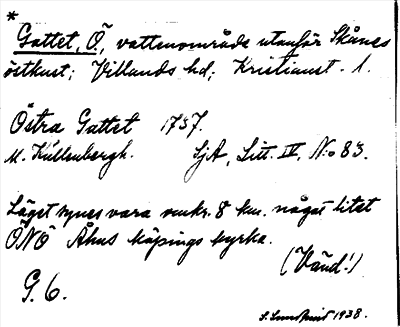 *
Gattet, Ö, vattenområde utanför Skånes
östkust; Villands hd; Kristianst. l.
Östra Gattet 1757.
M. Kullenbergh. SjA, Litt. IV, N:o 83.
Läget synes vara omkr. 8 km. något litet
ÖNÖ Åhus köpings kyrka.
(Vänd!)
G. 6.
S. Lundkvist 1938.